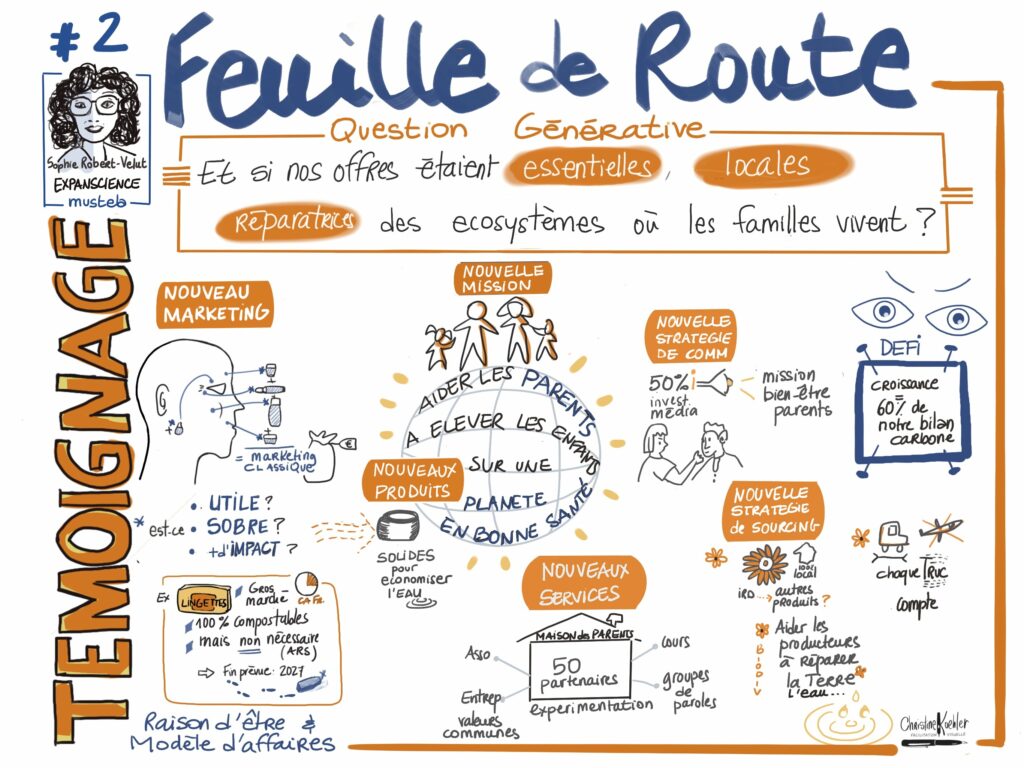 #2
Feuille de Route
Sophie Robert-Velut
EXPANSCIENCE
mustela
TEMOIGNAGE
Question Générative
Et si nos offres étaient essentielles, locales
réparatrices des ecosystèmes où les familles vivent ?
NOUVEAU
MARKETING
= marketing
CLASSIQUE
€
* est-ce
• UTILE ?
• SOBRE ?
• +d'IMPACT ?
Ex LINGETTES
Gros marché
CA Fr.
100% compostables
mais non nécessaire
(ARS)
⇨ Fin prévue : 2027
Raison d'être &
Modèle d'affaires
NOUVELLE
MISSION
AIDER LES PARENTS
A ELEVER LES ENFANTS
SUR UNE
PLANETE
EN BONNE SANTÉ
NOUVEAUX
PRODUITS
SOLIDES
pour
economiser
l'EAU
NOUVEAUX
SERVICES
MAISON des PARENTS
50
partenaires
experimentation
Asso
Entrep
valeurs
communes
cours
groupes
de
paroles
NOUVELLE
STRATEGIE
DE COMM
50%
invest.
média
mission
bien-être
parents
DEFI
croissance
=
60% de
notre bilan
carbone
NOUVELLE
STRATEGIE
de SOURCING
100%
local
IRD ...→ autres
produits ?
chaque TRUC
compte
BIODIV
Aider les
producteurs
à réparer
la Terre
L'eau...
Christine Koehler
FACILITATION VISUELLE